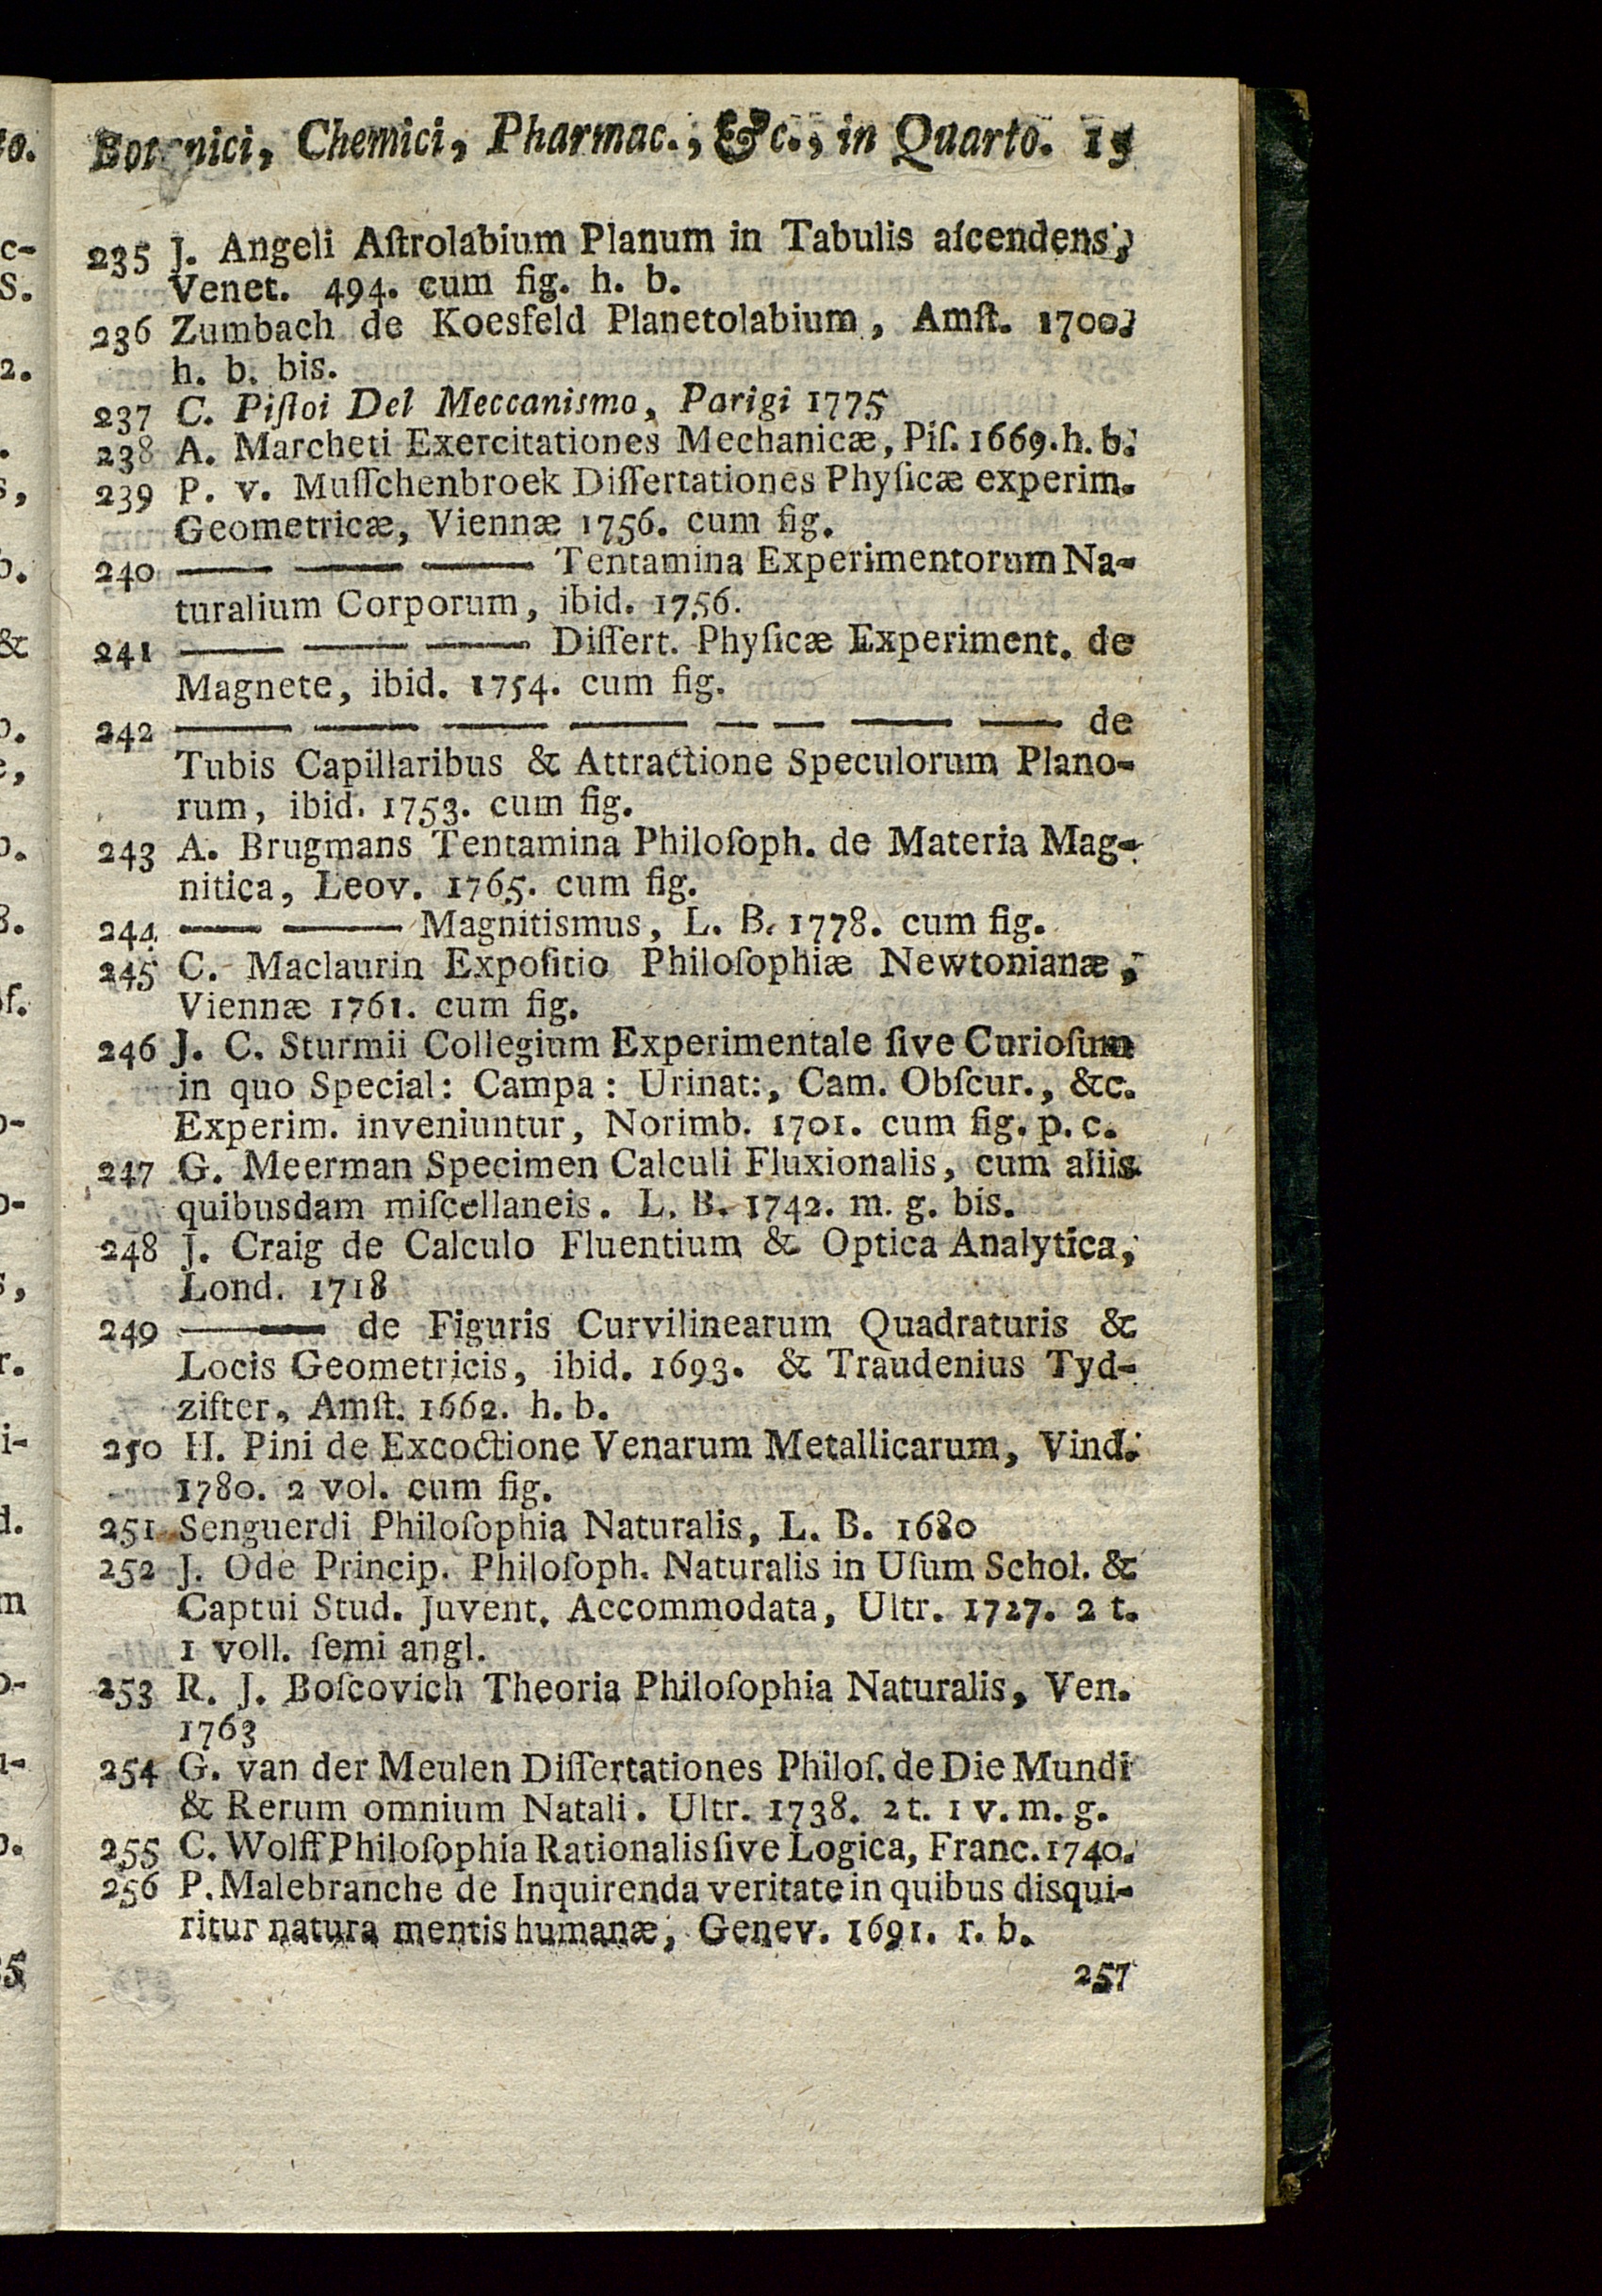 Botanici, Chemici, Pharmac., &c., in Quarto. 15
235 J. Angeli Aſtrolabium Planum in Tabulis aſcendens,
Venet. 494. cum fig. h. b.
236 Zumbach de Koesfeld Planetolabium, Amſt. 1700.
h. b. bis.
237 C. Piſtoi Del Meccanismo, Parigi 1775
238 A. Marcheti Exercitationes Mechanicæ, Piſ. 1669. h. b.
239 P. v. Muſſchenbroek Diſſertationes Phyſicæ experim.
Geometricæ, Viennæ 1756. cum fig.
240 — — — Tentamina Experimentorum Na-
turalium Corporum, ibid. 1756.
241 — — — Diſſert. Phyſicæ Experiment. de
Magnete, ibid. 1754. cum fig.
242 — — — — — — — — de
Tubis Capillaribus & Attractione Speculorum Plano-
rum, ibid. 1753. cum fig.
243 A. Brugmans Tentamina Philoſoph. de Materia Mag-
nitica, Leov. 1765. cum fig.
244 — — Magnitismus, L. B. 1778. cum fig.
245 C. Maclaurin Expoſitio Philoſophiæ Newtonianæ,
Viennæ 1761. cum fig.
246 J. C. Sturmii Collegium Experimentale ſive Curioſum
in quo Special: Campa: Urinat:, Cam. Obſcur., &c.
Experim. inveniuntur, Norimb. 1701. cum fig. p. c.
247 G. Meerman Specimen Calculi Fluxionalis, cum aliis
quibusdam miſcellaneis. L. B. 1742. m. g. bis.
248 J. Craig de Calculo Fluentium & Optica Analytica,
Lond. 1718
249 — — de Figuris Curvilinearum Quadraturis &
Locis Geometricis, ibid. 1693. & Traudenius Tyd-
zifter, Amſt. 1662. h. b.
250 H. Pini de Excoctione Venarum Metallicarum, Vind.
1780. 2 vol. cum fig.
251 Senguerdi Philoſophia Naturalis, L. B. 1680
252 J. Ode Princip. Philoſoph. Naturalis in Uſum Schol. &
Captui Stud. Juvent. Accommodata, Ultr. 1727. 2 t.
1 voll. ſemi angl.
253 R. J. Boſcovich Theoria Philoſophia Naturalis, Ven.
1763
254 G. van der Meulen Diſſertationes Philoſ. de Die Mundi
& Rerum omnium Natali. Ultr. 1738. 2 t. 1 v. m. g.
255 C. Wolff Philoſophia Rationalis ſive Logica, Franc. 1740.
256 P. Malebranche de Inquirenda veritate in quibus disqui-
ritur natura mentis humanæ, Genev. 1691. r. b.
257